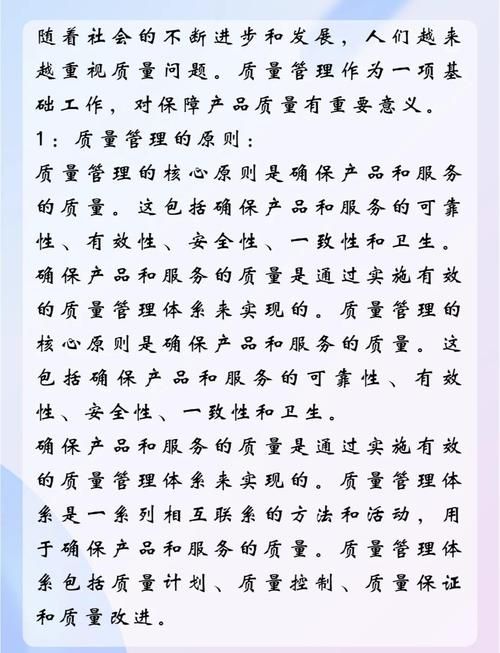 随着社会的不断进步和发展，人们越来
越重视质量问题。质量管理作为一项基
础工作，对保障产品质量有重要意义。
1：质量管理的原则：
质量管理的核心原则是确保产品和服务
的质量。这包括确保产品和服务的可靠
性、有效性、安全性、一致性和卫生。
确保产品和服务的质量是通过实施有效
的质量管理体系来实现的。质量管理的
核心原则是确保产品和服务的质量。这
包括确保产品和服务的可靠性、有效
性、安全性、一致性和卫生。
确保产品和服务的质量是通过实施有效
的质量管理体系来实现的。质量管理体
系是一系列相互联系的方法和活动，用
于确保产品和服务的质量。质量管理体
系包括质量计划、质量控制、质量保证
和质量改进。